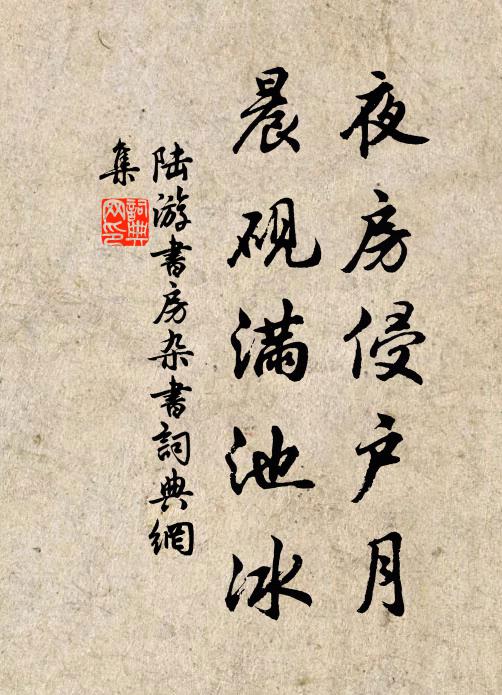 夜房侵户月
晨砚满池冰
陆游书房杂书詞典網
集
詞典
网印